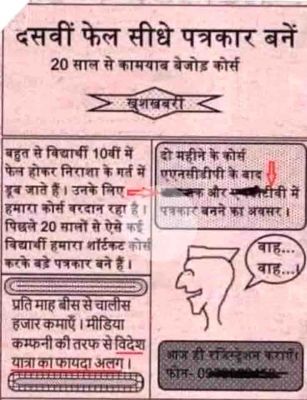 दसवीं फेल सीधे पत्रकार बनें
20 साल से कामयाब बेजोड़ कोर्स
खुशखबरी
बहुत से विद्यार्थी 10वीं में
फेल होकर निराशा के गर्त में
डूब जाते हैं। उनके लिए
हमारा कोर्स वरदान रहा है।
पिछले 20 सालों से ऐसे कई
विद्यार्थी हमारा शॉर्टकट कोर्स
करके बड़े पत्रकार बने हैं।
प्रति माह बीस से चालीस
हजार कमाएँ। मीडिया
कम्पनी की तरफ से विदेश
यात्रा का फायदा अलग।
दो महीने के कोर्स
एएनसीडीपी के बाद
और टीवी में
पत्रकार बनने का अवसर।
वाह...
वाह...!
आज ही रजिस्ट्रेशन कराएँ।
फोन-